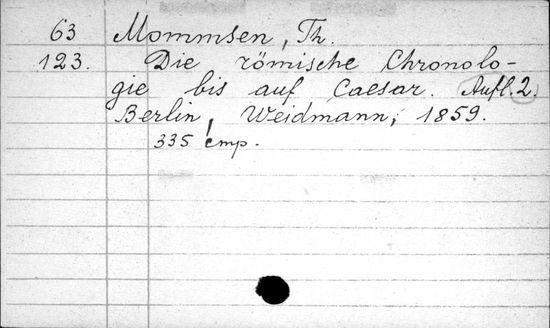 63 Mommsen, Th.
123. Die römische Chronolo-
gie bis auf Caesar. Aufl. 2.
Berlin, Weidmann, 1859.
335 стр.